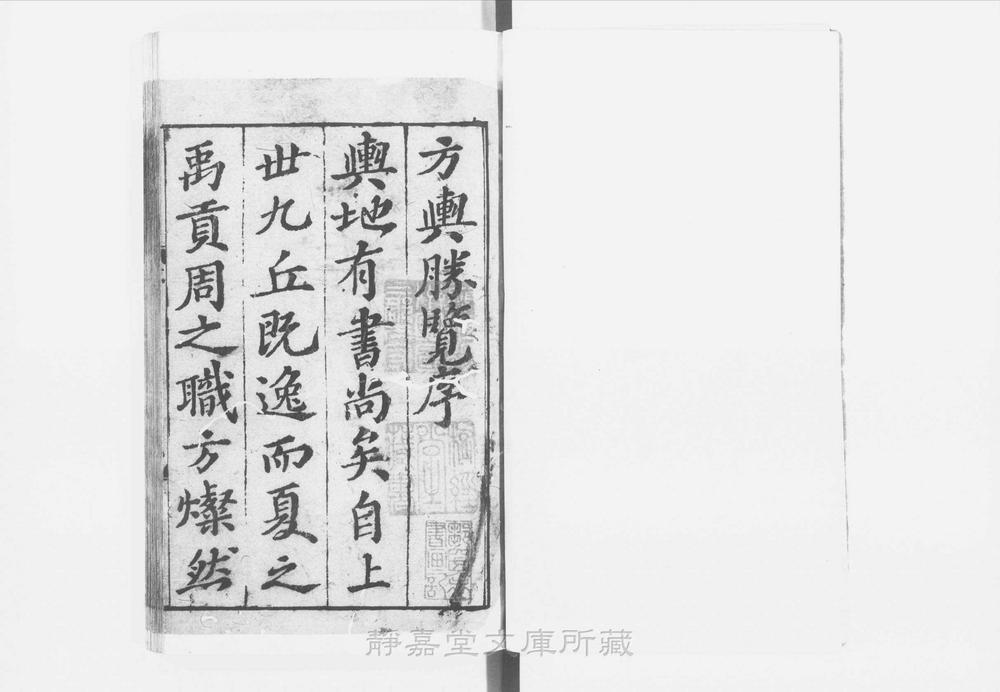 方輿勝覽序
輿地有書尚矣自上
丗九丘既逸而夏之
禹貢周之職方燦然
靜嘉堂文庫所藏